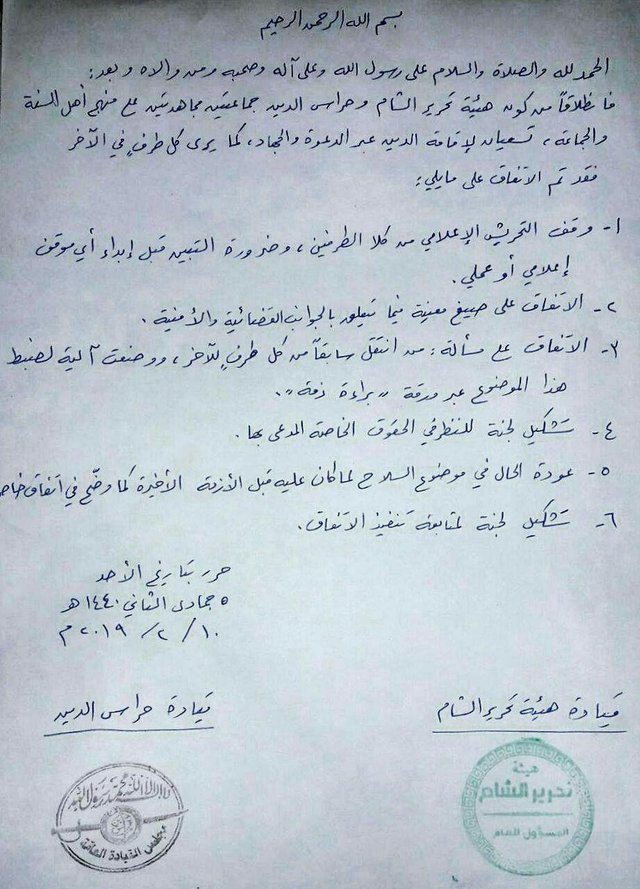 بسم الله الرحمن الرحيم
الحمد لله والصلاة والسلام على رسول الله وعلى آله وصحبه ومن والاه وبعد:
فانطلاقاً من كون هيئة تحرير الشام وحراس الدين جماعتين مجاهدتين على منهج أهل السنة
والجماعة، تسعيان لإقامة الدين عبر الدعوة والجهاد، كما يرى كل طرفٍ في الآخر
فقد تم الاتفاق على مايلي:
١- وقف التحريش الإعلامي من كلا الطرفين، وضرورة التبين قبل إبداء أي موقف
إعلامي أو عملي.
٢- الاتفاق على صيغ معينة فيما يتعلق بالجوانب القضائية والأمنية.
٣- الاتفاق على مسألة: من انتقل سابقاً من كل طرفٍ للآخر، ووضعت آلية لضبط
هذا الموضوع عبر ورقة "براءة ذمة".
٤- تشكيل لجنة للنظر في الحقوق الخاصة المدعى بها.
٥- عودة الحال في موضوع السلاح لما كان عليه قبل الأزمة الأخيرة كما وضّح في اتفاق خاص
٦- تشكيل لجنة لمتابعة تنفيذ الاتفاق.
حرر بتاريخ الأحد
٥ جمادى الثاني ١٤٤٠هـ
١٠/ ٢/ ٢٠١٩ م
قيادة هيئة تحرير الشام
قيادة حراس الدين
هيئة
تحرير الشام
المسؤول العام
لا إله إلا الله محمد رسول الله
مجلس القيادة العامة